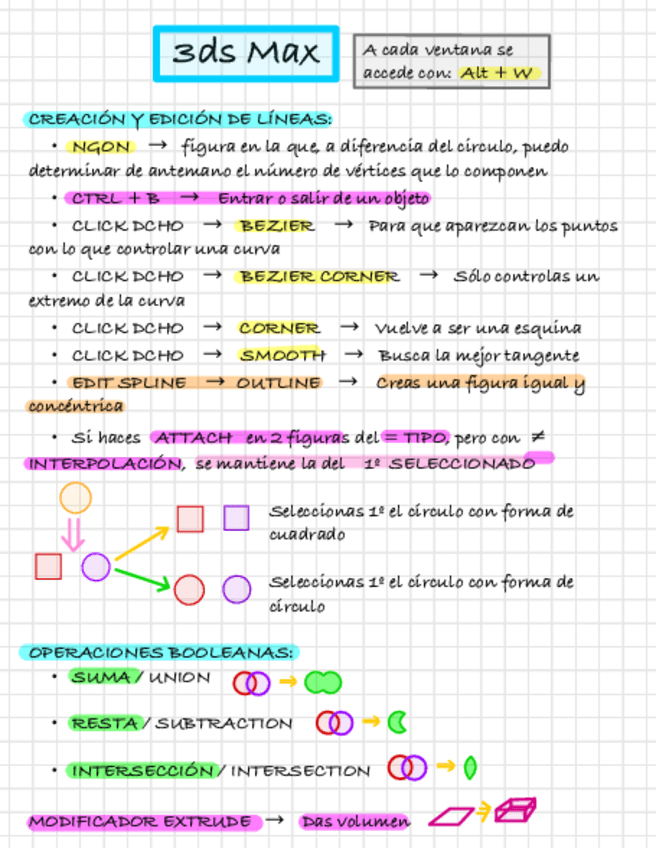 3ds Max
A cada ventana se
accede con: Alt + W
CREACIÓN Y EDICIÓN DE LÍNEAS:
• NGON → figura en la que, a diferencia del círculo, puedo
determinar de antemano el número de vértices que lo componen
• CTRL + B → Entrar o salir de un objeto
• CLICK DCHO → BEZIER → Para que aparezcan los puntos
con lo que controlar una curva
• CLICK DCHO → BEZIER CORNER → Sólo controlas un
extremo de la curva
• CLICK DCHO → CORNER → Vuelve a ser una esquina
• CLICK DCHO → SMOOTH → Busca la mejor tangente
• EDIT SPLINE → OUTLINE → Creas una figura igual y
concéntrica
• Si haces ATTACH en 2 figuras del = TIPO, pero con ≠
INTERPOLACIÓN, se mantiene la del 1º SELECCIONADO
Seleccionas 1º el círculo con forma de
cuadrado
Seleccionas 1º el círculo con forma de
círculo
OPERACIONES BOOLEANAS:
• SUMA / UNION
• RESTA / SUBTRACTION
• INTERSECCIÓN / INTERSECTION
MODIFICADOR EXTRUDE → Das volumen